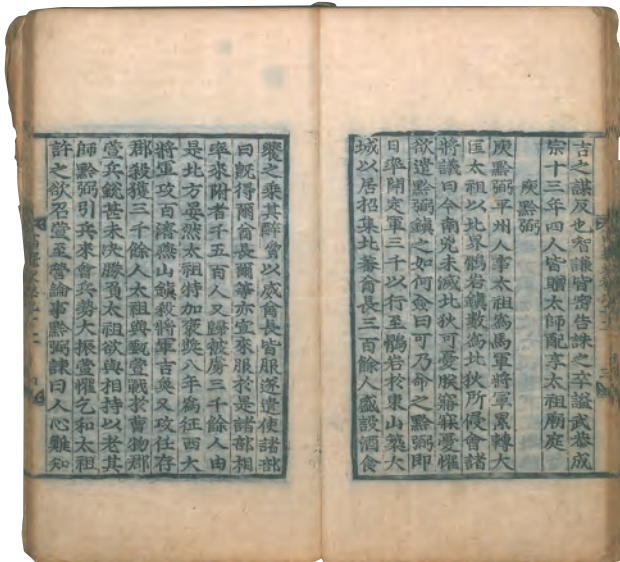 言之謀反也智謙皆密告誅之卒謚武恭成
宗十三年四人皆贈太師配享太祖廟庭
庾黔弼
庾黔弼平州人事太祖爲馬軍將軍累轉大
匡太祖以北界鶻岩鎮數爲北狄所侵會諸
將議曰今南兇未滅北狄可憂朕寤寐憂懼
欲遣黔弼鎮之如何僉曰可乃命之黔弼即
日率開定軍三千以行至鶻岩於東山築大
城以居招集北蕃酋長三百餘人盛設酒食
饗之乘其醉脅以威酋長皆服遂遣使諸部
曰旣得爾酋長爾等亦宜來服於是諸部相
率來附者千五百人又歸被虜三千餘人由
是北方晏然太祖特加褒奬八年爲征西大
將軍攻百濟燕山鎮殺將軍吉奐又攻任存
郡殺獲三千餘人太祖與甄萱戰於曹物郡
萱兵銳甚未決勝負太祖欲與相持以老其
師黔弼引兵來會兵勢大振萱懼乞和太祖
許之欲召萱至營論事黔弼諫曰人心難知